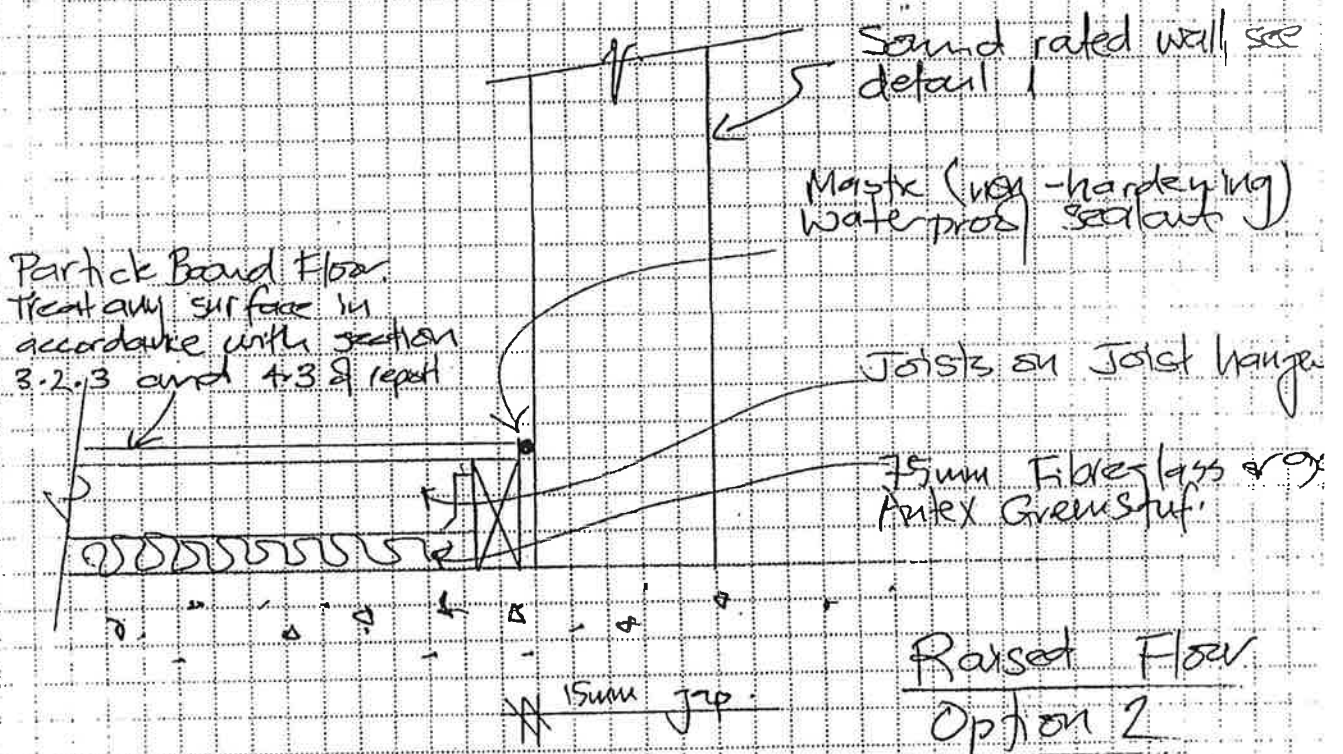 Sound rated wall see
detail 1
Mastic (non-hardening)
waterproof sealant
Particle Board Floor.
Treat any surface in
accordance with section
3.2.3 and 4.3 of report
Joists on Joist hanger
75mm Fibreglass or
Autex GreenStuf.
15mm gap.
Raised Floor
Option 2